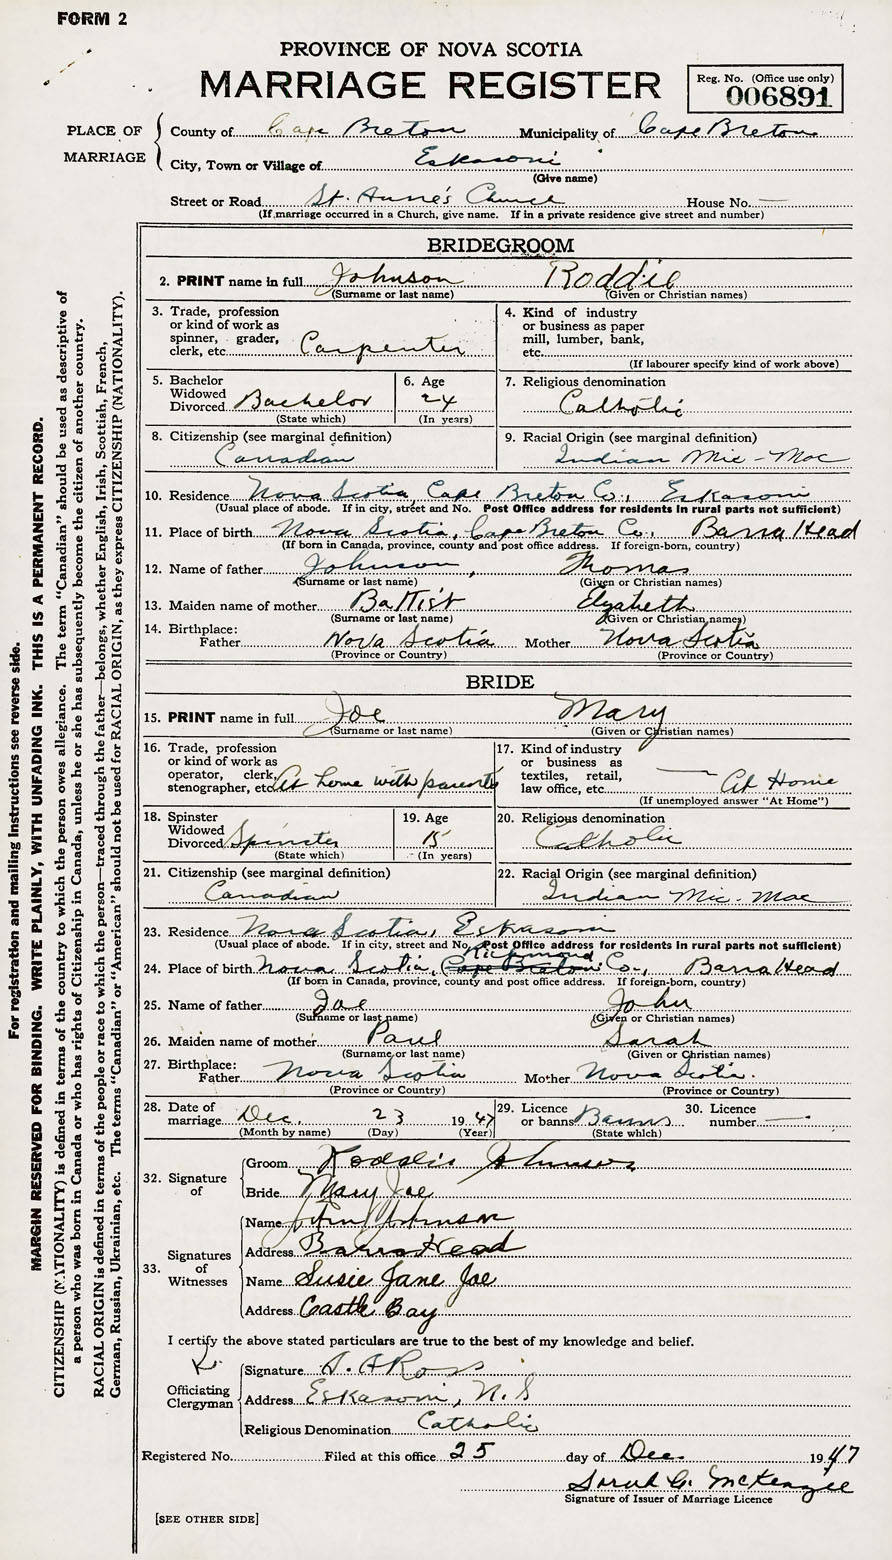 FORM 2
PROVINCE OF NOVA SCOTIA
MARRIAGE REGISTER
Reg. No. (Office use only)
006891
PLACE OF MARRIAGE
County of Cape Breton Municipality of Cape Breton
City, Town or Village of Eskasoni
(Give name)
Street or Road St. Anne's Church House No. —
(If marriage occurred in a Church, give name. If in a private residence give street and number)
BRIDEGROOM
2. PRINT name in full Johnson Roddie
(Surname or last name) (Given or Christian names)
3. Trade, profession or kind of work as spinner, grader, clerk, etc. Carpenter
4. Kind of industry or business as paper mill, lumber, bank, etc.
(If labourer specify kind of work above)
5. Bachelor Widowed Divorced Bachelor
(State which)
6. Age 24
(In years)
7. Religious denomination
Catholic
8. Citizenship (see marginal definition)
Canadian
9. Racial Origin (see marginal definition)
Indian Mic-Mac
10. Residence Nova Scotia, Cape Breton Co., Eskasoni
(Usual place of abode. If in city, street and No. Post Office address for residents in rural parts not sufficient)
11. Place of birth Nova Scotia, Cape Breton Co., Barra Head
(If born in Canada, province, county and post office address. If foreign-born, country)
12. Name of father Johnson, Thomas
(Surname or last name) (Given or Christian names)
13. Maiden name of mother Battist Elizabeth
(Surname or last name) (Given or Christian names)
14. Birthplace:
Father Nova Scotia Mother Nova Scotia
(Province or Country) (Province or Country)
BRIDE
15. PRINT name in full Joe Mary
(Surname or last name) (Given or Christian names)
16. Trade, profession or kind of work as operator, clerk, stenographer, etc. At home with parents
17. Kind of industry or business as textiles, retail, law office, etc. — At Home
(If unemployed answer "At Home")
18. Spinster Widowed Divorced Spinster
(State which)
19. Age 15
(In years)
20. Religious denomination
Catholic
21. Citizenship (see marginal definition)
Canadian
22. Racial Origin (see marginal definition)
Indian Mic-Mac
23. Residence Nova Scotia, Eskasoni
(Usual place of abode. If in city, street and No. Post Office address for residents in rural parts not sufficient)
Richmond
24. Place of birth Nova Scotia, Cape Breton Co., Barra Head
(If born in Canada, province, county and post office address. If foreign-born, country)
25. Name of father Joe John
(Surname or last name) (Given or Christian names)
26. Maiden name of mother Paul Sarah
(Surname or last name) (Given or Christian names)
27. Birthplace:
Father Nova Scotia Mother Nova Scotia.
(Province or Country) (Province or Country)
28. Date of marriage Dec. 23 1947
(Month by name) (Day) (Year)
29. Licence or banns Banns
(State which)
30. Licence number —
32. Signature of
Groom Roddie Johnson
Bride Mary Joe
33. Signatures of Witnesses
Name John Johnson
Address Barra Head
Name Susie Jane Joe
Address Castle Bay
I certify the above stated particulars are true to the best of my knowledge and belief.
Officiating Clergyman
Signature A. A Ross
Address Eskasoni, N.S
Religious Denomination Catholic
Registered No. Filed at this office 25 day of Dec. 1947
Sarah C. McKenzie
Signature of Issuer of Marriage Licence
[SEE OTHER SIDE]
For registration and mailing instructions see reverse side.
MARGIN RESERVED FOR BINDING. WRITE PLAINLY, WITH UNFADING INK. THIS IS A PERMANENT RECORD.
CITIZENSHIP (NATIONALITY) is defined in terms of the country to which the person owes allegiance. The term "Canadian" should be used as descriptive of
a person who was born in Canada or who has rights of Citizenship in Canada, unless he or she has subsequently become the citizen of another country.
RACIAL ORIGIN is defined in terms of the people or race to which the person—traced through the father—belongs, whether English, Irish, Scottish, French,
German, Russian, Ukrainian, etc. The terms "Canadian" or "American" should not be used for RACIAL ORIGIN, as they express CITIZENSHIP (NATIONALITY).